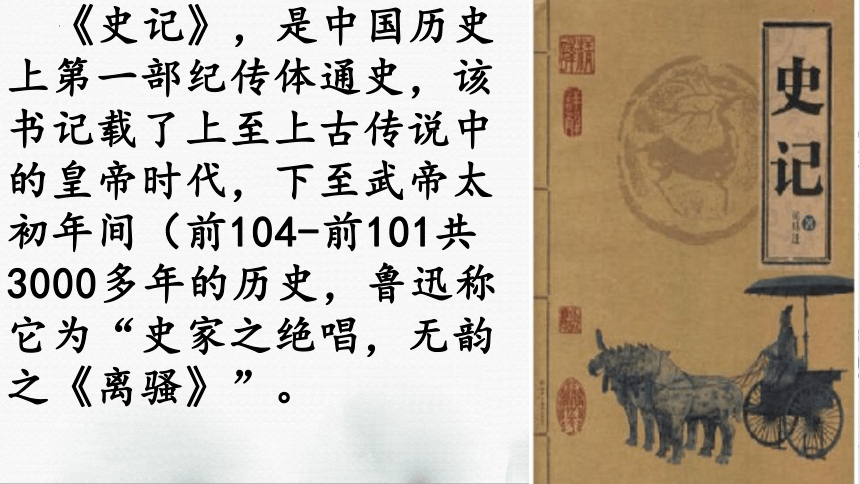 《史记》，是中国历史
上第一部纪传体通史，该
书记载了上至上古传说中
的皇帝时代，下至武帝太
初年间（前104-前101共
3000多年的历史，鲁迅称
它为“史家之绝唱，无韵
之《离骚》”。
史记
著